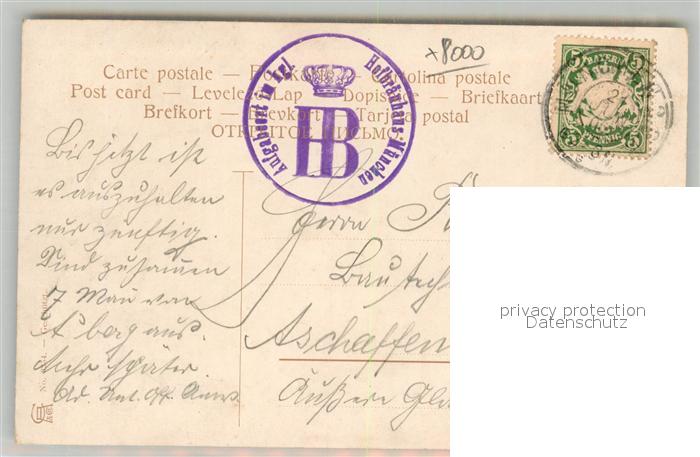 +8000
Carte postale — Postkarte — Cartolina postale
Post card — Levelező-Lap — Dopisnice — Briefkaart
Brefkort — Brevkort — Tarjeta postal
ОТКРЫТОЕ ПИСЬМО.
Aufgegeben im kgl. Hofbräuhaus München
HB
5 BAYERN 5
5 PFENNIG 5
Bis jetzt ist
es auszuhalten
nur zünftig.
Sind zusammen
7 Mann von
A'berg aus.
Mehr später.
Herrn
Bautech
Aschaffen
Äußere Gla
No.
privacy protection
Datenschutz